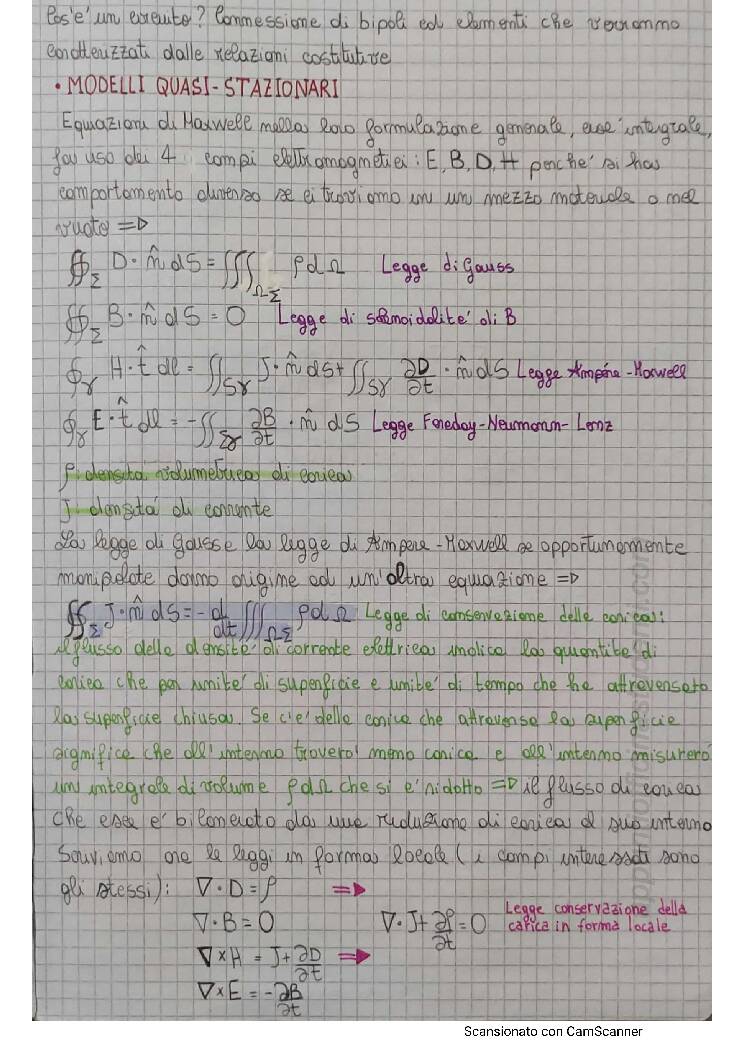 Cos'e' un circuito? Connessione di bipoli ed elementi che verranno
caratterizzati dalle relazioni costitutive
• MODELLI QUASI-STAZIONARI
Equazioni di Maxwell nella loro formulazione generale, cioe' integrale,
fa uso dei 4 campi elettromagnetici: E, B, D, H perche' si ha
comportamento diverso se ci troviamo in un mezzo materiale o nel
vuoto =D
∯_Σ D·n̂ dS = ∭_ΩΣ ρ dΩ Legge di Gauss
∯_Σ B·n̂ dS = 0 Legge di solenoidalite' di B
∮_γ H·t̂ dl = ∬_Sγ J·n̂ dS + ∬_Sγ ∂D/∂t · n̂ dS Legge Ampére-Maxwell
∮_γ E·t̂ dl = -∬_Σγ ∂B/∂t · n̂ dS Legge Faraday-Neumann-Lenz
ρ densita' volumetrica di carica
J densita' di corrente
La legge di Gauss e la legge di Ampere-Maxwell se opportunamente
manipolate danno origine ad un'altra equazione =D
∯_Σ J·n̂ dS = -d/dt ∭_ΩΣ ρ dΩ Legge di conservazione della carica:
il flusso della densite' di corrente elettrica indica la quantite' di
carica che per unite' di superficie e unite' di tempo che ha attraversato
la superficie chiusa. Se c'e' della carica che attraversa la superficie
significa che all'interno trovero' meno carica e all'interno misurero'
un integrale di volume ρdΩ che si e' ridotto =D il flusso di carica
che esce e' bilanciato da una riduzione di carica al suo interno
Scriviamo ora le leggi in forma locale (i campi interessati sono
gli stessi): ∇·D = ρ ⇒
∇·B = 0 ∇·J + ∂ρ/∂t = 0 Legge conservazione della
carica in forma locale
∇×H = J + ∂D/∂t ⇒
∇×E = -∂B/∂t
Scansionato con CamScanner